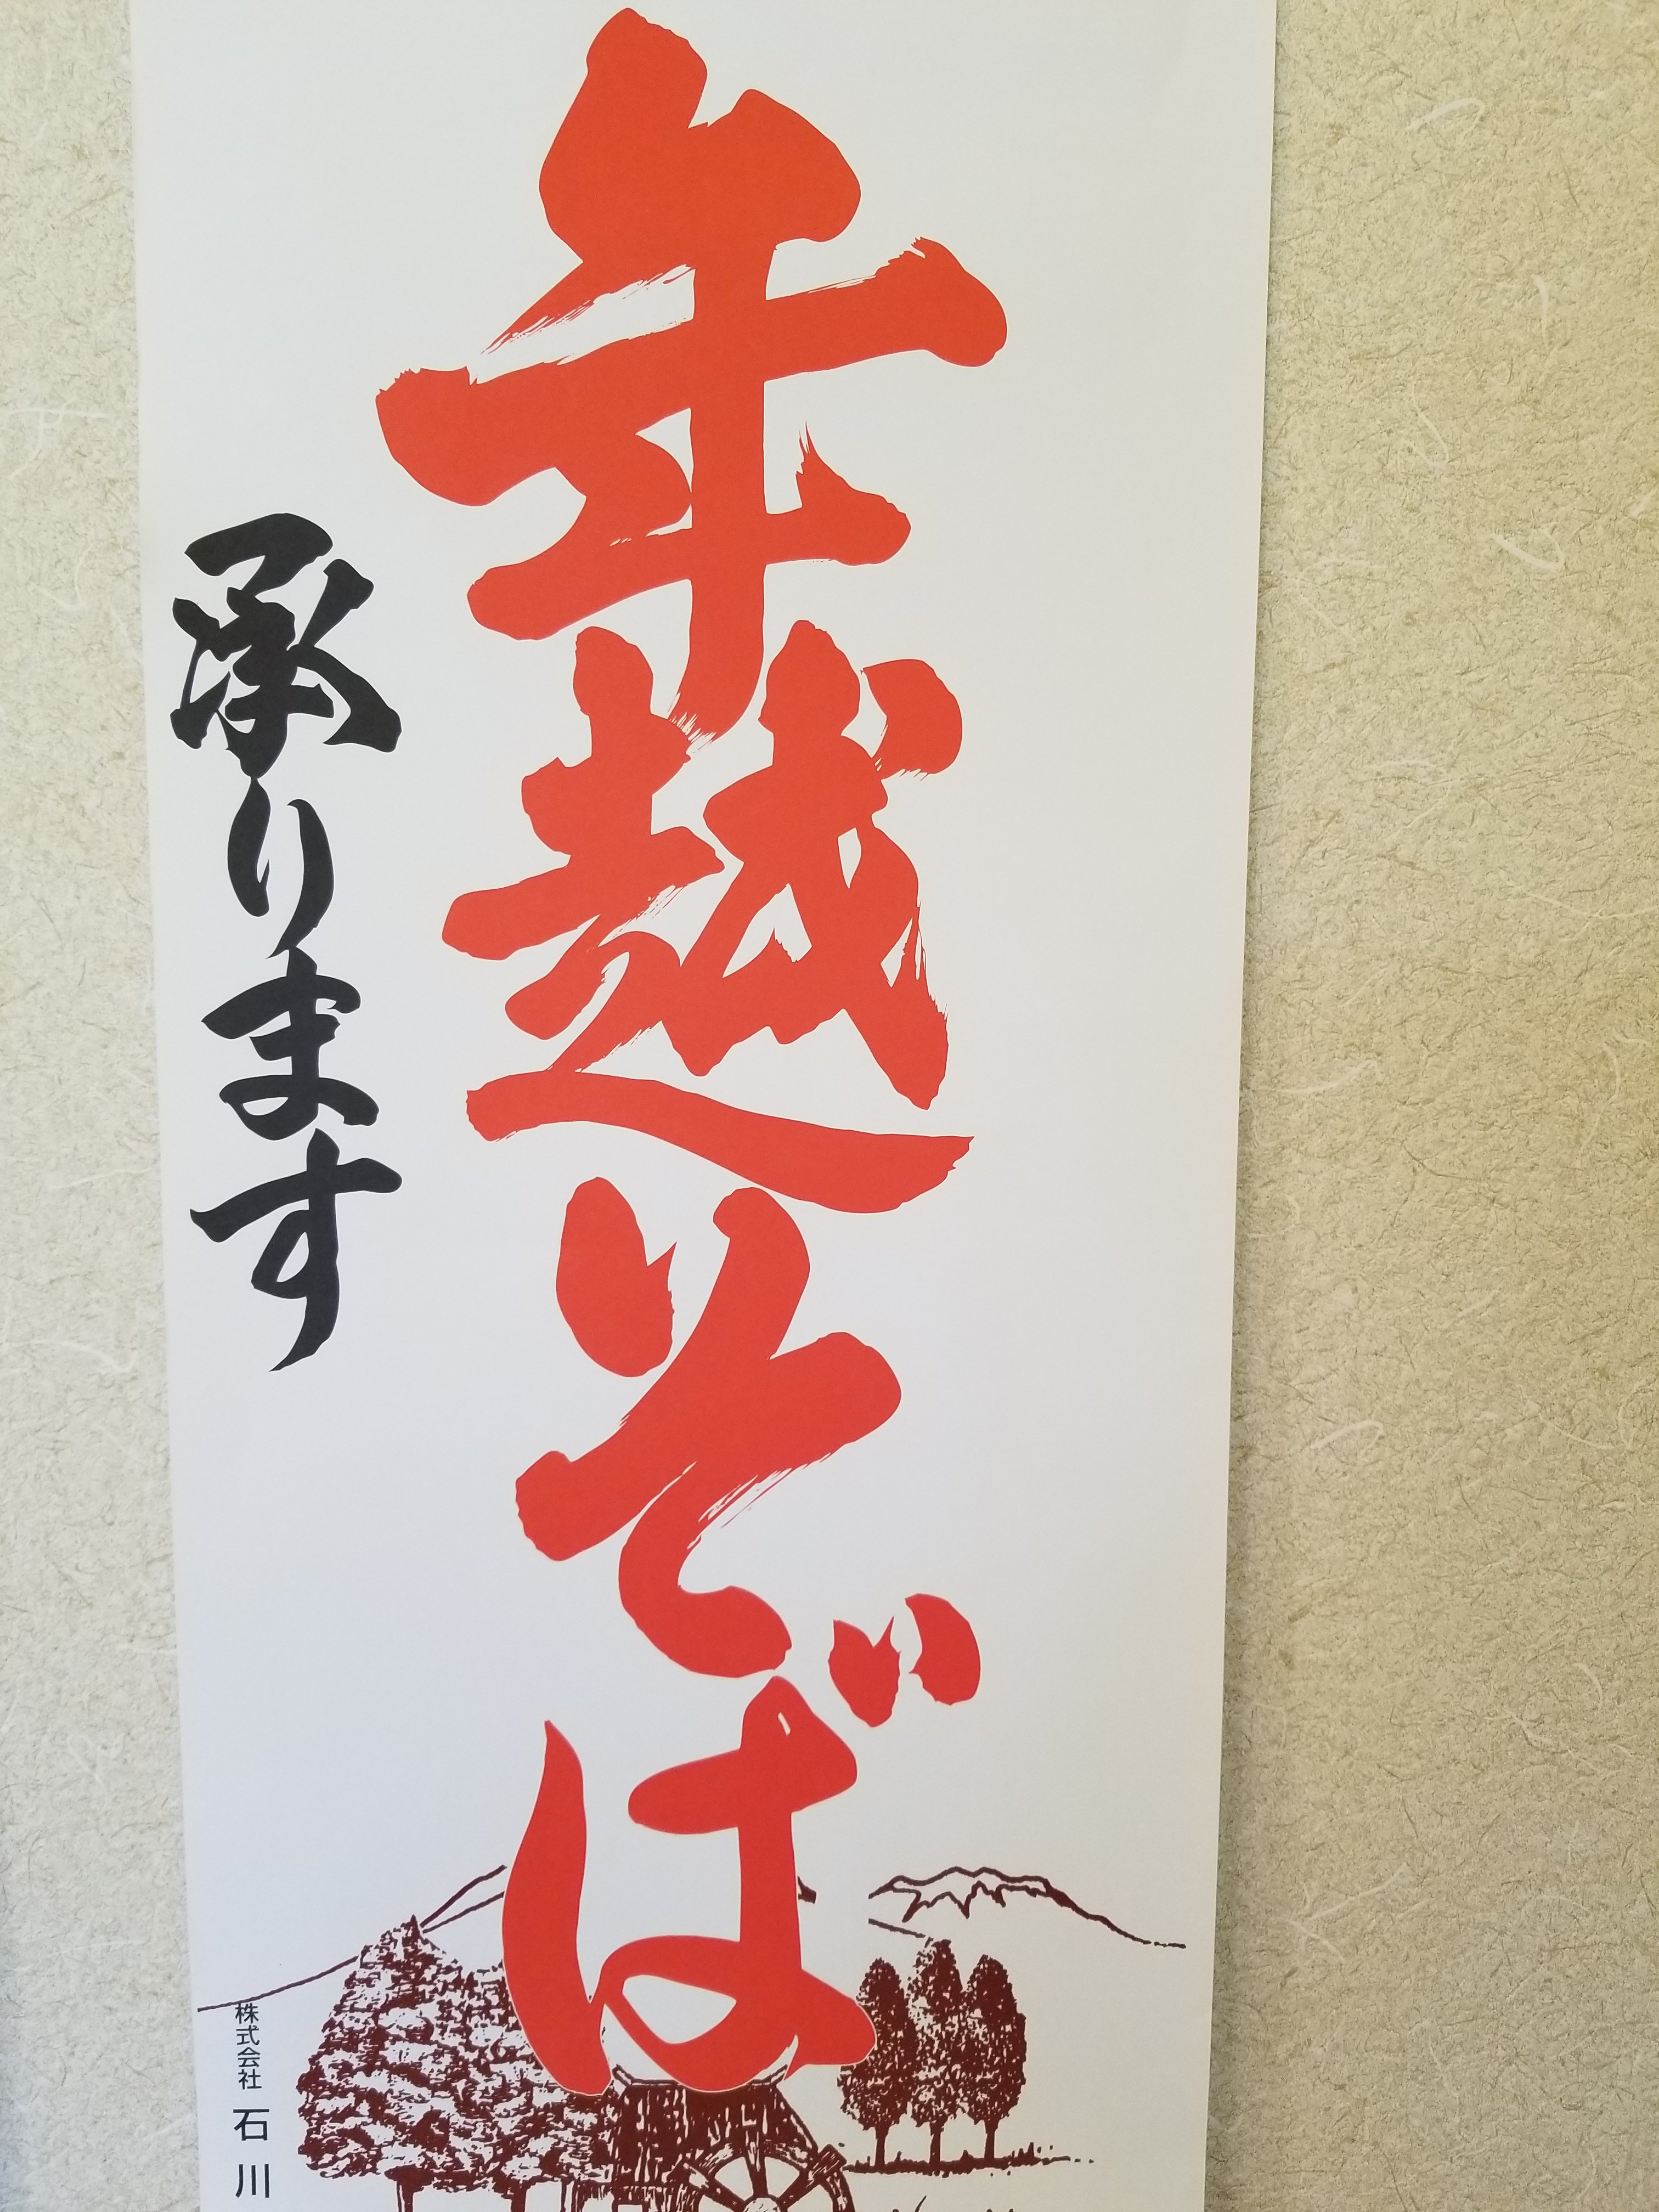 年越そば
承ります
株式会社 石川